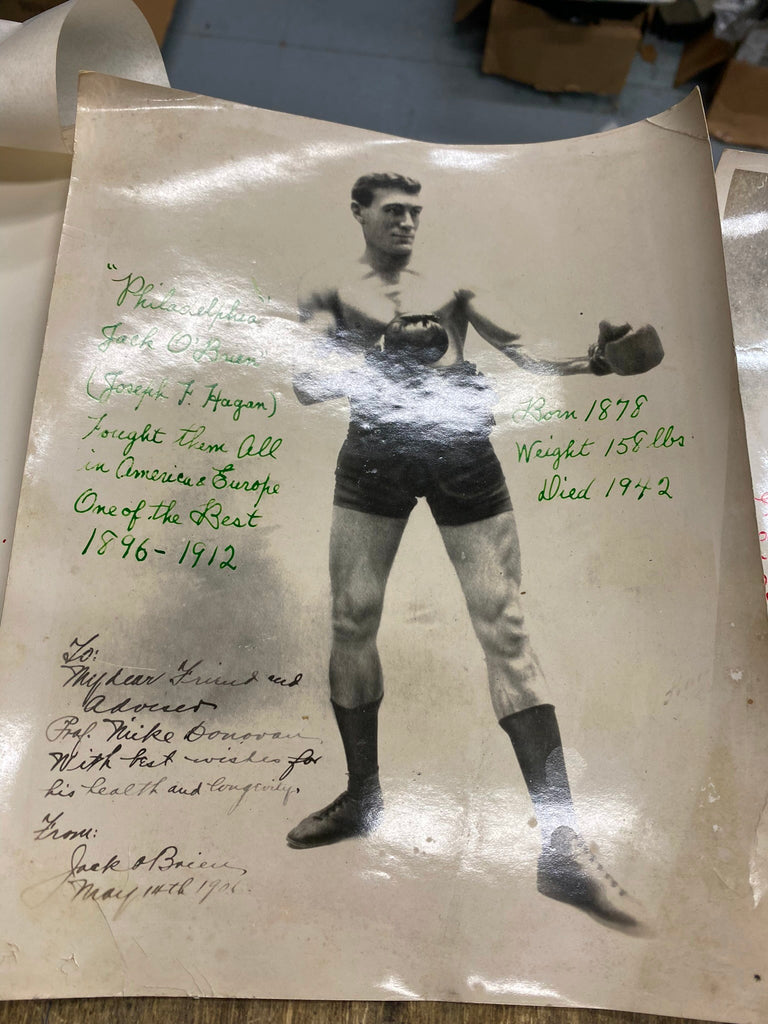 "Philadelphia"
Jack O'Brien
(Joseph F. Hagan)
Fought them All
in America & Europe
One of the Best
1896-1912
Born 1878
Weight 158 lbs
Died 1942
To:
My dear Friend and
Adviser
Prof. Mike Donovan
With best wishes for
his health and longevity.
From:
Jack O'Brien
May 14th